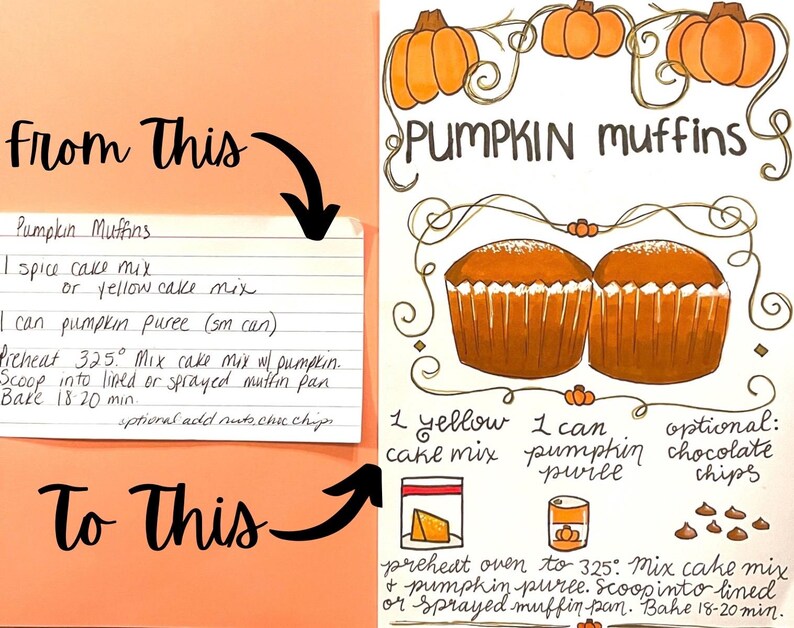 From This
Pumpkin Muffins
1 spice cake mix
or yellow cake mix
1 can pumpkin puree (sm can)
Preheat 325.° Mix cake mix w/ pumpkin.
Scoop into lined or sprayed muffin pan
Bake 18-20 min.
optional add nuts, choc chips
To This
PUMPKIN muffins
1 yellow
cake mix
1 can
pumpkin
puree
optional:
chocolate
chips
preheat oven to 325°. Mix cake mix
& pumpkin puree. Scoop into lined
or sprayed muffin pan. Bake 18-20 min.